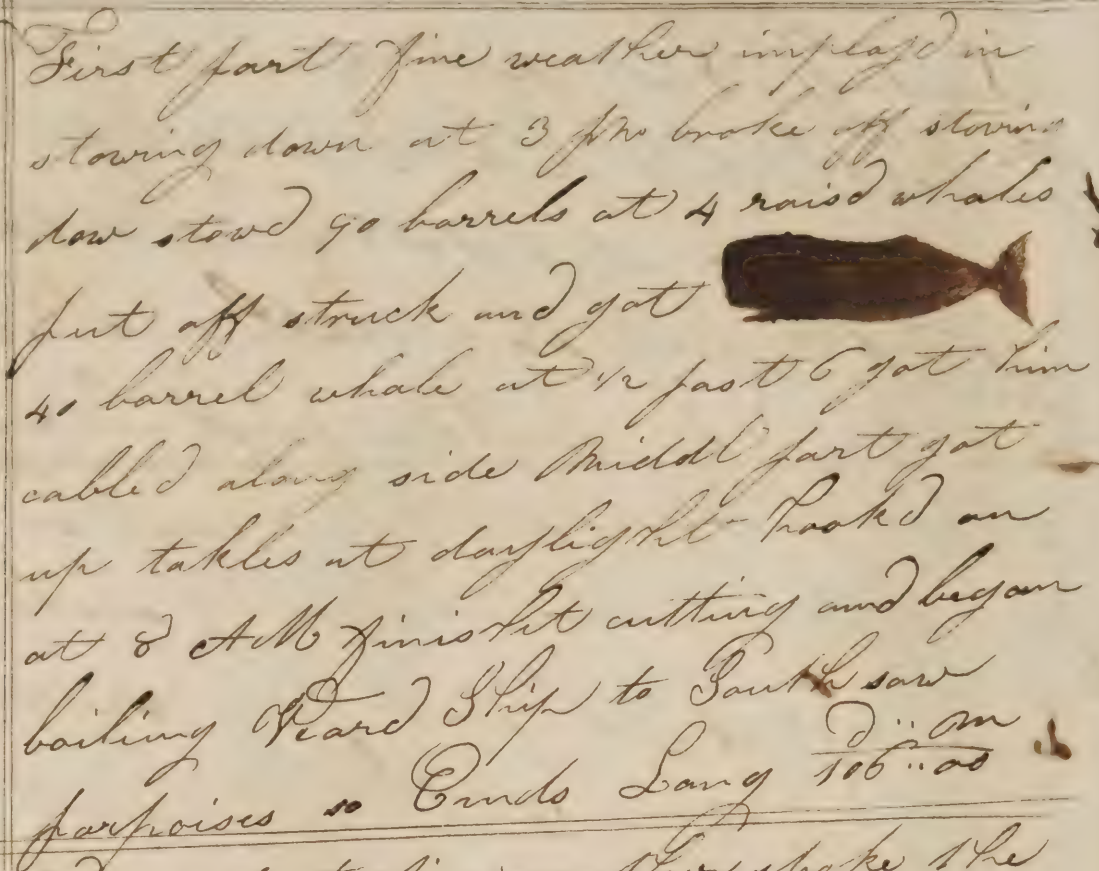 First part fine weather imployd in
stowing down at 3 pm broke off stowing
dow stowd 90 barrels at 4 raisd whales
put off struck and got
40 barrel whale at 1/2 past 6 got him
cabled along side Middl part got
up takles at daylight hookd on
at 8 AM finisht cutting and began
boiling Weard Ship to South saw
porpoises so Ends Long D :: M
106 :: 00
the